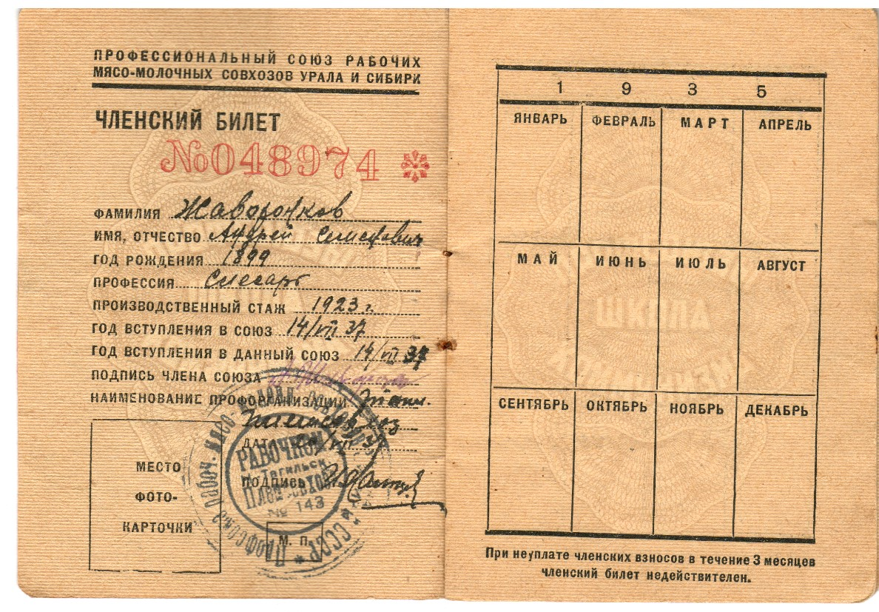 ПРОФЕССИОНАЛЬНЫЙ СОЮЗ РАБОЧИХ
МЯСО-МОЛОЧНЫХ СОВХОЗОВ УРАЛА И СИБИРИ
ЧЛЕНСКИЙ БИЛЕТ
№048974
ФАМИЛИЯ Жаворонков
ИМЯ, ОТЧЕСТВО Андрей
ГОД РОЖДЕНИЯ 1899
ПРОФЕССИЯ Слесарь
ПРОИЗВОДСТВЕННЫЙ СТАЖ 1923 г.
ГОД ВСТУПЛЕНИЯ В СОЮЗ 14/VII 37
ГОД ВСТУПЛЕНИЯ В ДАННЫЙ СОЮЗ 14/VII 37
ПОДПИСЬ ЧЛЕНА СОЮЗА
НАИМЕНОВАНИЕ ПРОФОРГАНИЗАЦИИ
ДАТА
ПОДПИСЬ
МЕСТО
ФОТО-
КАРТОЧКИ
М. П.
РАБОЧКОМ
№ 143
СССР
1 9 3 5
ЯНВАРЬ ФЕВРАЛЬ МАРТ АПРЕЛЬ
МАЙ ИЮНЬ ИЮЛЬ АВГУСТ
ШКОЛА
КОММУНИЗМА
СЕНТЯБРЬ ОКТЯБРЬ НОЯБРЬ ДЕКАБРЬ
При неуплате членских взносов в течение 3 месяцев
членский билет недействителен.